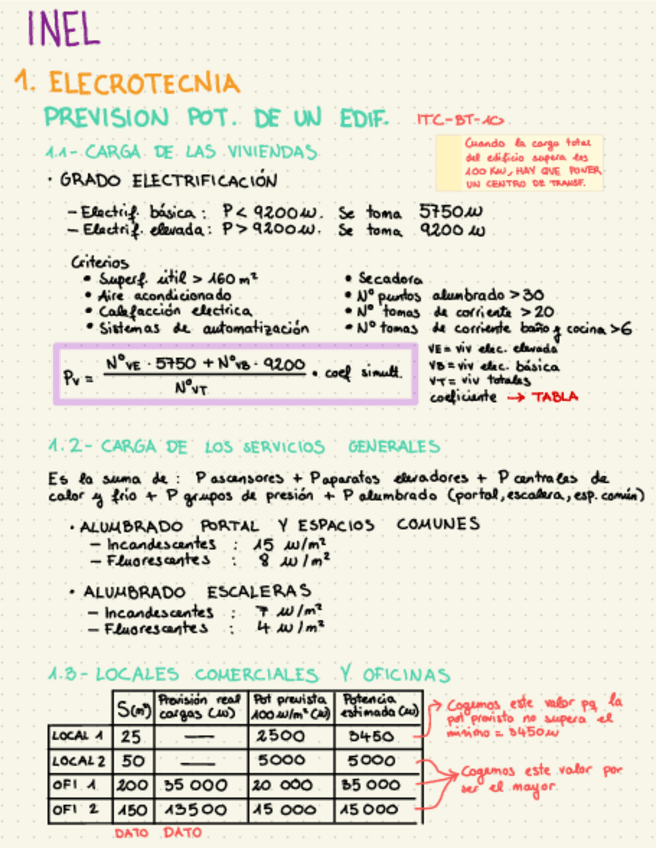 INEL
1. ELECROTECNIA
PREVISION POT. DE UN EDIF. ITC-BT-10
1.1- CARGA DE LAS VIVIENDAS
Cuando la carga total
del edificio supera los
100 KW, HAY QUE PONER
UN CENTRO DE TRANSF.
· GRADO ELECTRIFICACIÓN
- Electrif. básica : P < 9200 w. Se toma 5750 w
- Electrif. elevada : P > 9200 w. Se toma 9200 w
Criterios
• Superf. útil > 160 m²
• Aire acondicionado
• Calefacción electrica
• Sistemas de automatización
• Secadora
• Nº puntos alumbrado > 30
• Nº tomas de corriente > 20
• Nº tomas de corriente baño y cocina > 6
Pv = NºVE · 5750 + NºVB · 9200 / NºVT • coef simult.
VE = viv elec. elevada
VB = viv elec. básica
VT = viv totales
coeficiente → TABLA
1.2- CARGA DE LOS SERVICIOS GENERALES
Es la suma de : P ascensores + P aparatos elevadores + P centrales de
calor y frio + P grupos de presión + P alumbrado (portal, escalera, esp. común)
· ALUMBRADO PORTAL Y ESPACIOS COMUNES
- Incandescentes : 15 w/m²
- Fluorescentes : 8 w/m²
· ALUMBRADO ESCALERAS
- Incandescentes : 7 w/m²
- Fluorescentes : 4 w/m²
1.3- LOCALES COMERCIALES Y OFICINAS
S(m²) Previsión real cargas (w) Pot prevista 100 w/m² (w) Potencia estimada (w)
LOCAL 1 25 — 2500 3450
LOCAL 2 50 — 5000 5000
OFI 1 200 35 000 20 000 35 000
OFI 2 150 13500 15 000 15 000
DATO DATO
Cogemos este valor pq la
pot prevista no supera el
mínimo = 3450 w
Cogemos este valor por
ser el mayor.